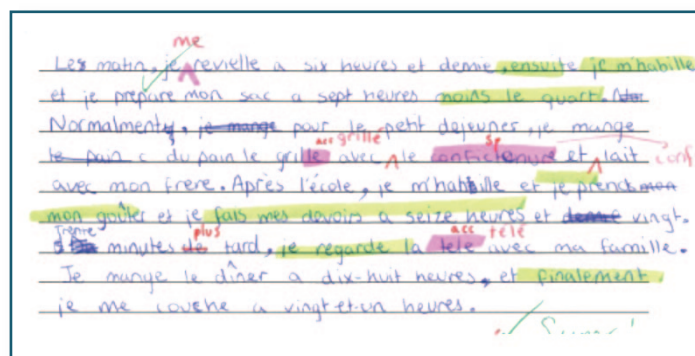 me
Les matin, je revielle a six heures et demie, ensuite je m'habille
et je prepare mon sac a sept heures moins le quart.
Normalment, je mange pour le petit dejeuner, je mange
acc grillé sp
le pain c du pain le grille avec le confictenure et lait conf
avec mon frere. Après l'école, je m'habille et je prends mon
mon goûter et je fais mes devoirs a seize heures et demie vingt.
Trente plus acc télé
minutes de tard, je regarde la tele avec ma famille.
Je mange le dîner a dix-huit heures, et finalement
je me couche a vingt-et-un heures.
Super!